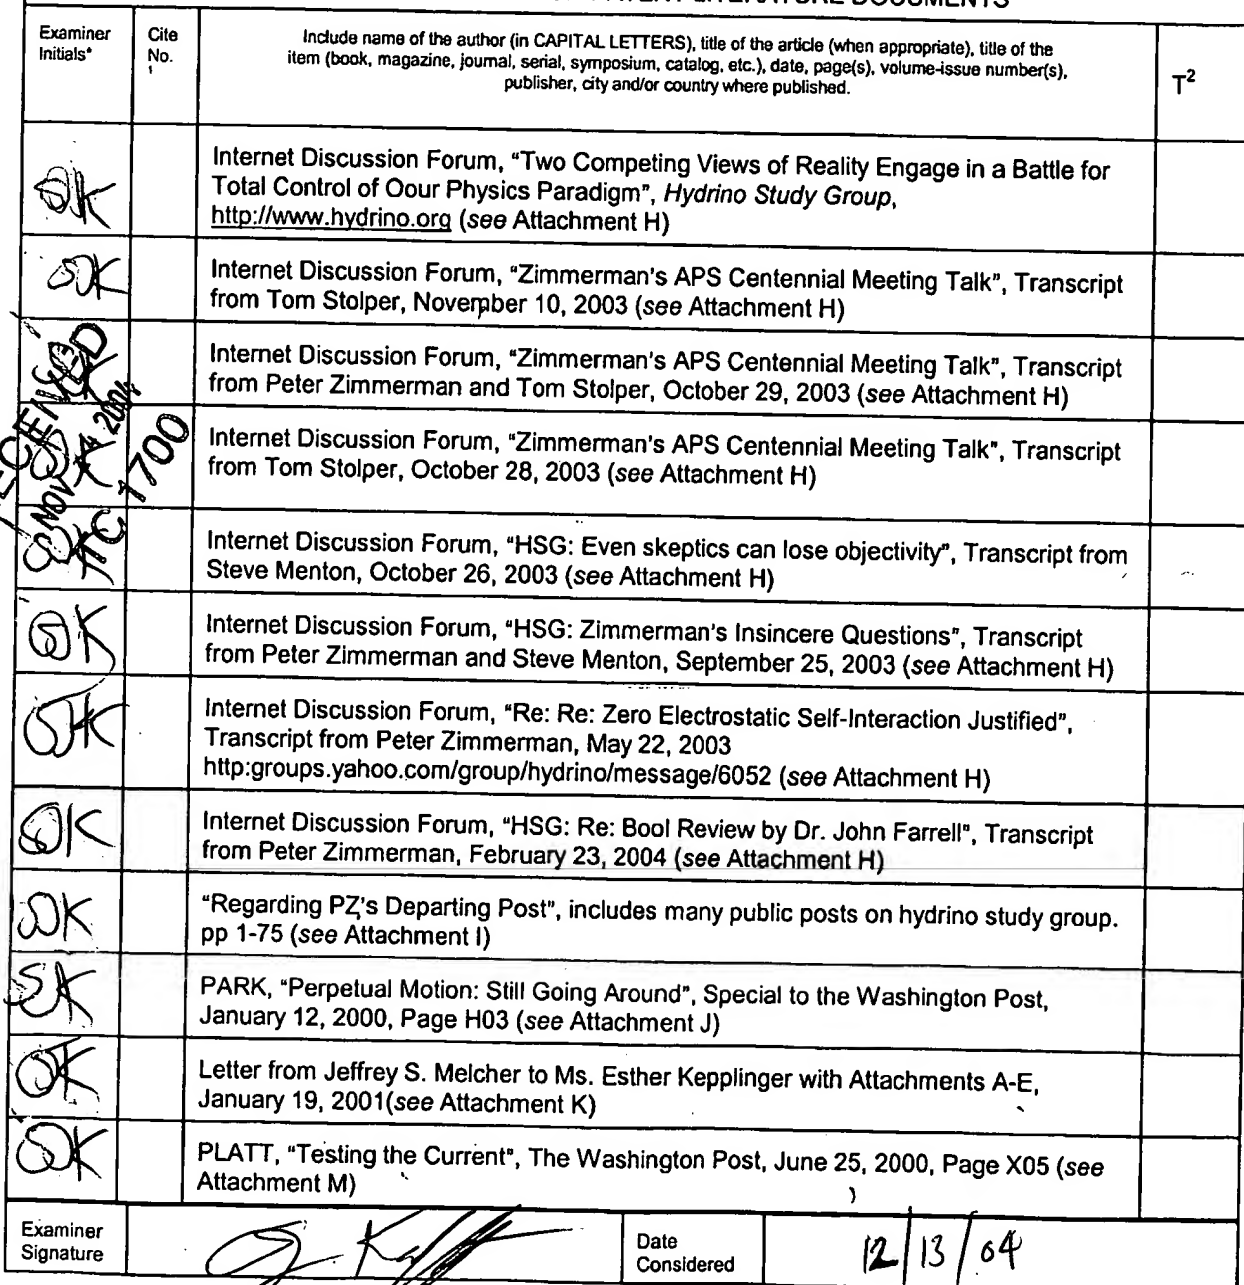 LITERATURE DOCUMENTS
Examiner
Initials*
Cite
No.
1
Include name of the author (in CAPITAL LETTERS), title of the article (when appropriate), title of the
item (book, magazine, journal, serial, symposium, catalog, etc.), date, page(s), volume-issue number(s),
publisher, city and/or country where published.
T2
SK
Internet Discussion Forum, "Two Competing Views of Reality Engage in a Battle for
Total Control of Oour Physics Paradigm", Hydrino Study Group,
http://www.hydrino.org (see Attachment H)
SK
Internet Discussion Forum, "Zimmerman's APS Centennial Meeting Talk", Transcript
from Tom Stolper, November 10, 2003 (see Attachment H)
Internet Discussion Forum, "Zimmerman's APS Centennial Meeting Talk", Transcript
from Peter Zimmerman and Tom Stolper, October 29, 2003 (see Attachment H)
SK
Internet Discussion Forum, "Zimmerman's APS Centennial Meeting Talk", Transcript
from Tom Stolper, October 28, 2003 (see Attachment H)
NOV 2004
TC 1700
SK
Internet Discussion Forum, "HSG: Even skeptics can lose objectivity", Transcript from
Steve Menton, October 26, 2003 (see Attachment H)
SK
Internet Discussion Forum, "HSG: Zimmerman's Insincere Questions", Transcript
from Peter Zimmerman and Steve Menton, September 25, 2003 (see Attachment H)
SK
Internet Discussion Forum, "Re: Re: Zero Electrostatic Self-Interaction Justified",
Transcript from Peter Zimmerman, May 22, 2003
http:groups.yahoo.com/group/hydrino/message/6052 (see Attachment H)
SK
Internet Discussion Forum, "HSG: Re: Bool Review by Dr. John Farrell", Transcript
from Peter Zimmerman, February 23, 2004 (see Attachment H)
SK
"Regarding PZ's Departing Post", includes many public posts on hydrino study group.
pp 1-75 (see Attachment I)
SK
PARK, "Perpetual Motion: Still Going Around", Special to the Washington Post,
January 12, 2000, Page H03 (see Attachment J)
SK
Letter from Jeffrey S. Melcher to Ms. Esther Kepplinger with Attachments A-E,
January 19, 2001(see Attachment K)
SK
PLATT, "Testing the Current", The Washington Post, June 25, 2000, Page X05 (see
Attachment M)
Examiner
Signature
Date
Considered
12/13/04